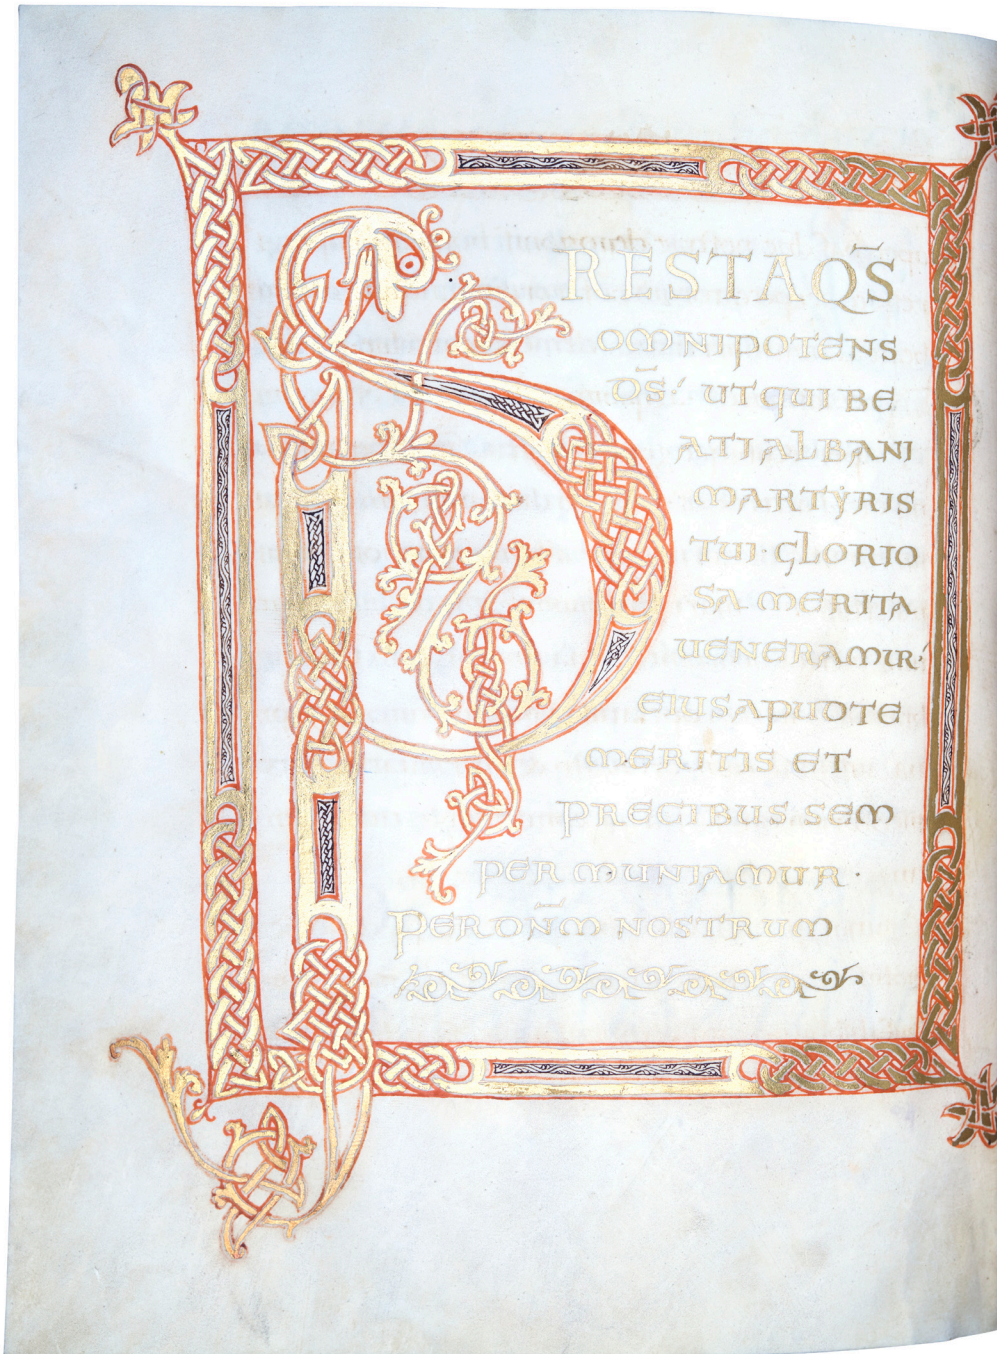 PRESTAQ̄S
OMNIPOTENS
D̄S UTQUI BE
ATI ALBANI
MARTYRIS
TUI·GLORIO
SA MERITA
UENERAMUR·
EIUS APUDTE
MERITIS ET
PRECIBUS SEM
PER MUNIAMUR·
PER DN̄M NOSTRUM